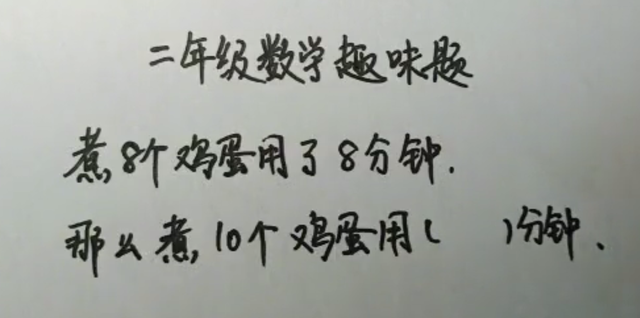 二年级数学趣味题
煮8个鸡蛋用了8分钟.
那么煮10个鸡蛋用(  )分钟.